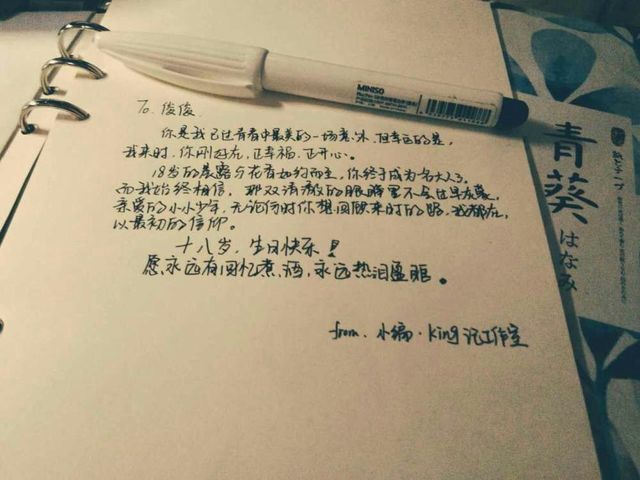 To 俊俊
你是我已过青春中最美的一场意外,但幸运的是,
我来时,你刚好在,正幸福,正开心。
18岁的晨露与花香如约而至,你终于成为名大人了
而我始终相信,那双清澈的眼眸里不会过早衣裳,
亲爱的小小少年,无论何时你想回头来时的路,我都在,
以最初的信仰。
十八岁,生日快乐!
愿永远有回忆煮酒,永远热泪盈眶。
from. 小编·King记工作室
MINISO
青葵
はなみ